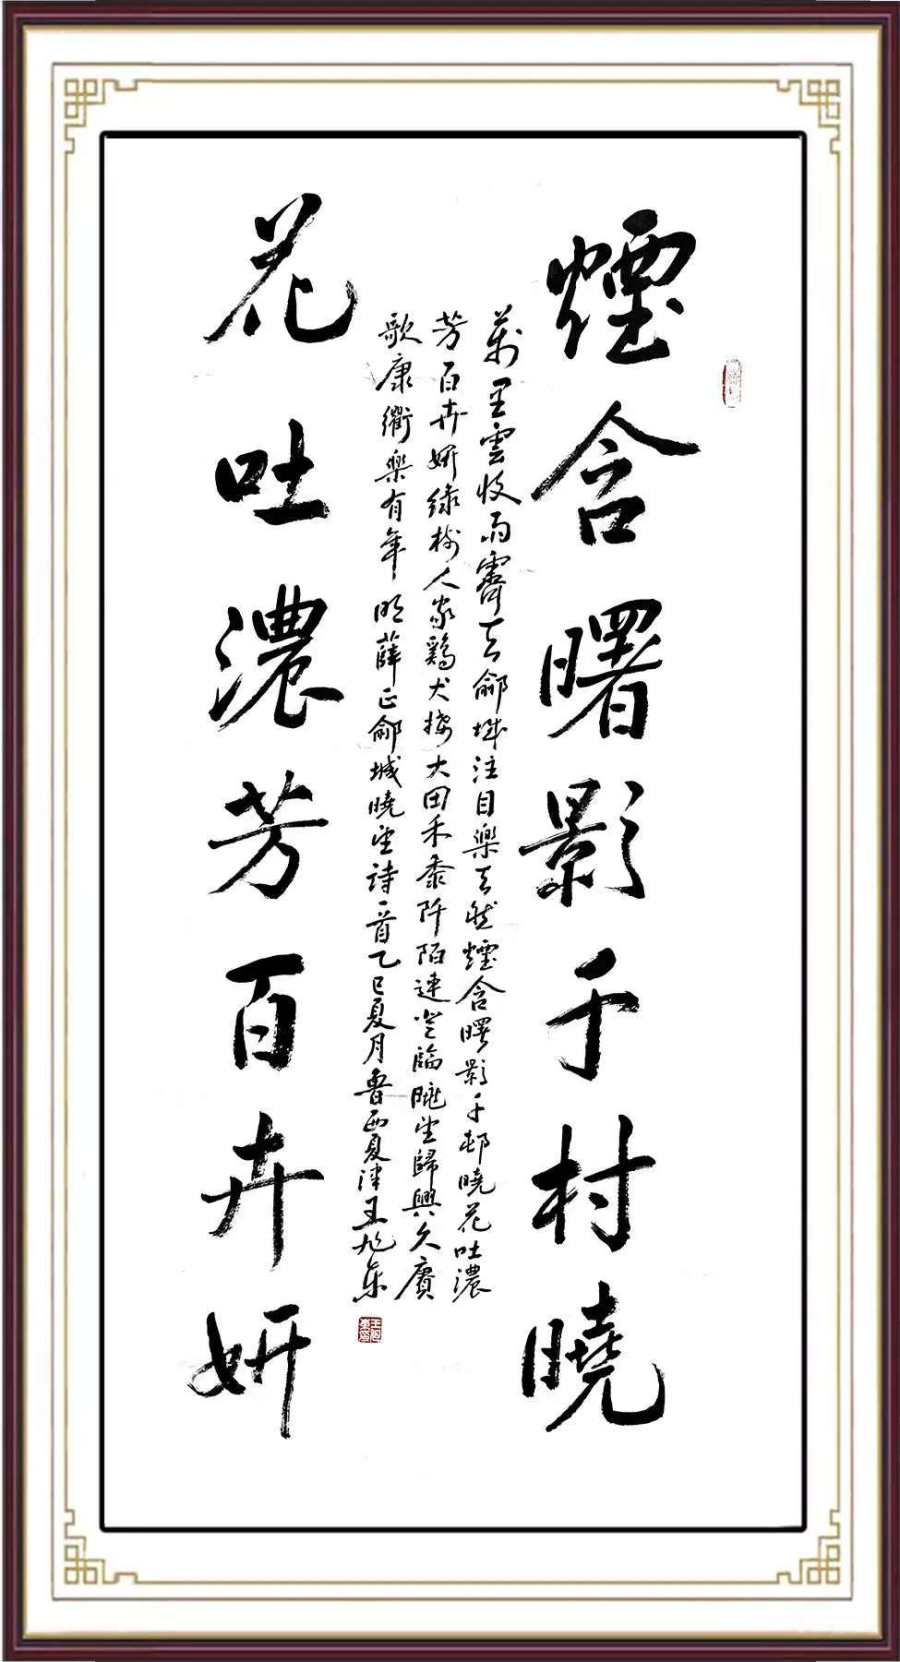 煙含曙影千村曉
萬里雲收雨霽天鄃城注目樂天然煙含曙影千邨曉花吐濃
芳百卉妍綠樹人家鷄犬接大田禾黍阡陌連登臨眺望歸興久賡
歌康衢樂有年明薛正鄃城曉望詩一首乙巳夏月魯西夏津王旭東
花吐濃芳百卉妍